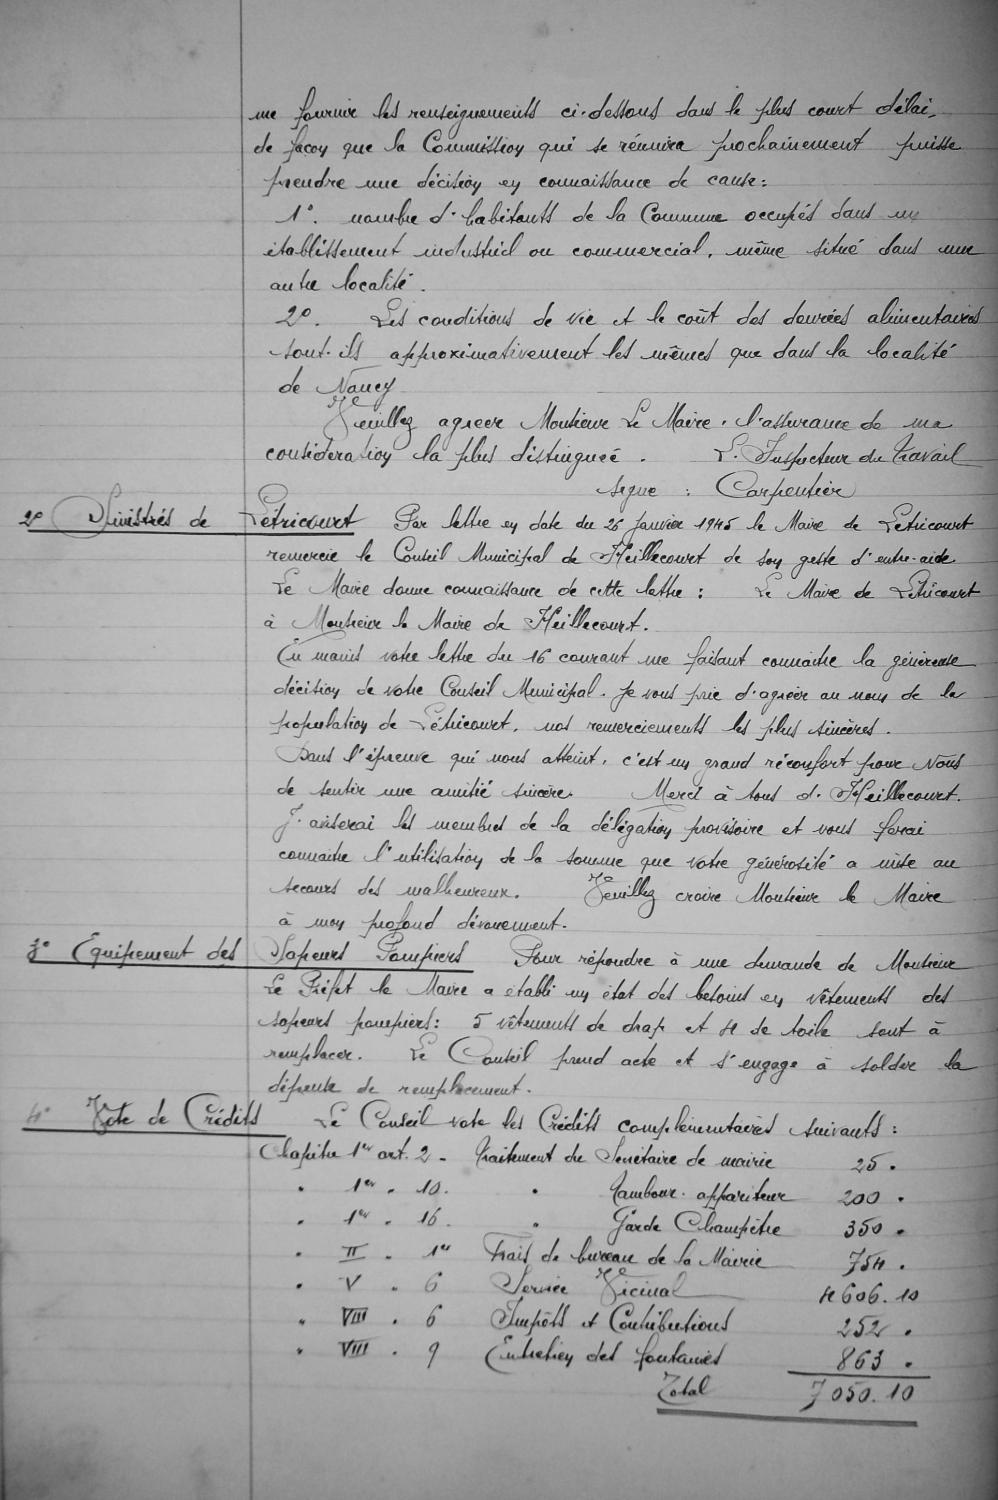 me fournir les renseignements ci-dessous dans le plus court délai,
de façon que la Commission qui se réunira prochainement puisse
prendre une décision en connaissance de cause:
1°. nombre d'habitants de la Commune occupés dans un
établissement industriel ou commercial, même situé dans une
autre localité.
2°. Les conditions de vie et le coût des denrées alimentaires
sont-ils approximativement les mêmes que dans la localité
de Nancy
Veuillez agréer Monsieur Le Maire, l'assurance de ma
considération la plus distinguée. L. Inspecteur du Travail
signé : Carpentier
2° Sinistrés de Létricourt Par lettre en date du 25 Janvier 1945 le Maire de Létricourt
remercie le Conseil Municipal de Heillecourt de son geste d'entre-aide
Le Maire donne connaissance de cette lettre : Le Maire de Létricourt
à Monsieur le Maire de Heillecourt.
En mains votre lettre du 16 courant me faisant connaitre la généreuse
décision de votre Conseil Municipal. Je vous prie d'agréer au nom de la
population de Létricourt, nos remerciements les plus sincères.
Dans l'épreuve qui nous atteint, c'est un grand réconfort pour Nous
de sentir une amitié sincère. Merci à tous d. Heillecourt.
J. aviserai les membres de la délégation provisoire et vous ferai
connaitre l'utilisation de la somme que votre générosité a mise au
secours des malheureux. Veuillez croire Monsieur le Maire
à mon profond dévouement.
3° Equipement des Sapeurs Pompiers Pour répondre à une demande de Monsieur
Le Préfet le Maire a établi un état des besoins en vêtements des
sapeurs pompiers: 5 vêtements de drap et 4 de toile sont à
remplacer. Le Conseil prend acte et s'engage à solder la
dépense de remplacement.
4° Vote de Crédits Le Conseil vote les Crédits complémentaires suivants :
Chapitre 1er art. 2 - Traitement du Secrétaire de mairie 25 .
" 1er " 10. " Tambour-appariteur 200 .
" 1er " 16. " Garde Champêtre 350 .
" II " 1er Frais de bureau de la Mairie 754 .
" V " 6 Service Vicinal 4606.10
" VIII " 6 Impôts et Contributions 252 .
" VIII " 9 Entretien des fontaines 863 .
Total 7050.10